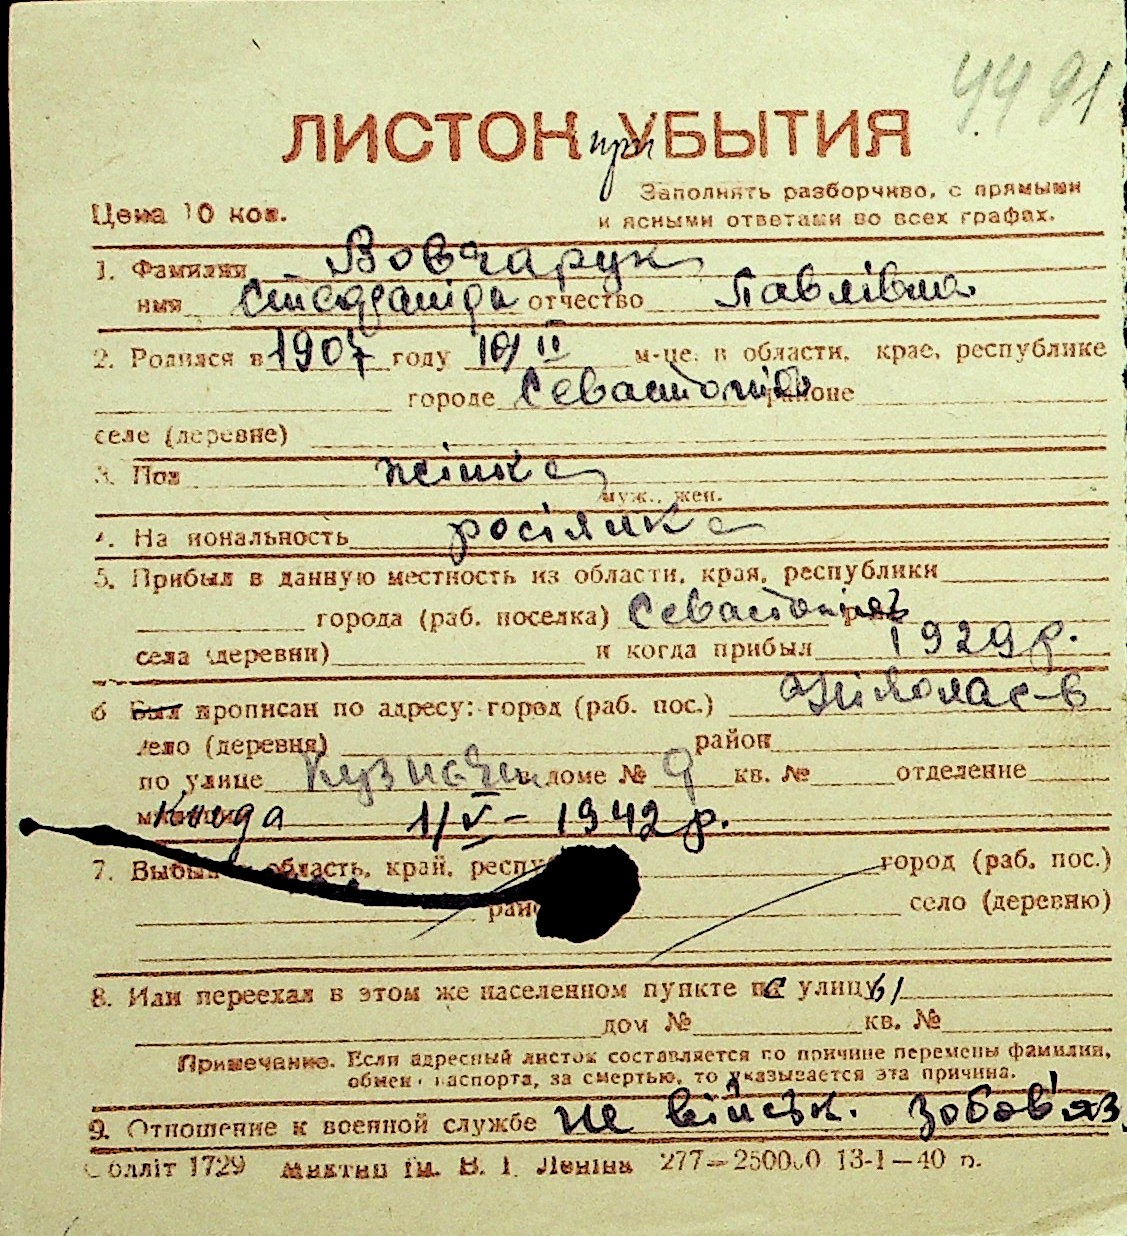 4491
ЛИСТОК при УБЫТИЯ
Заполнять разборчиво, с прямыми
Цена 10 коп.
и ясными ответами во всех графах.
1. Фамилия Вовчарук
имя Степаніда отчество Павлівна
2. Родился в 1907 году 10/II м-це, в области, крае, республике
городе Севастопіль районе
селе (деревне)
3. Пол жінка
муж., жен.
4. Национальность росіянка
5. Прибыл в данную местность из области, края, республики
города (раб. поселка) Севастопіль
села (деревни) и когда прибыл 1929 р.
6 Был прописан по адресу: город (раб. пос.) Ніколаєв
село (деревня) район
по улице Кузнечн в доме № 9 кв. № отделение
милиции Коида 1/V - 1942 р.
7. Выбыл в область, край, респуб город (раб. пос.)
райо село (деревню)
8. Или переехал в этом же населенном пункте с улицы
дом № кв. №
Примечание. Если адресный листок составляется по причине перемены фамилии,
обмена паспорта, за смертью, то указывается эта причина.
9. Отношение к военной службе не військ. зобов'яз.
Облліт 1729 ім. В. І. Леніна 277—250000 13-1—40 р.